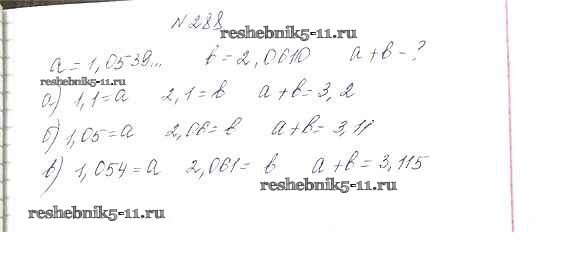 № 288
reshebnik5-11.ru
a = 1,0539... b = 2,0610 a + b - ?
reshebnik5-11.ru
а) 1,1 = a 2,1 = b a + b = 3,2
б) 1,05 = a 2,06 = b a + b = 3,11
в) 1,054 = a 2,061 = b a + b = 3,115
reshebnik5-11.ru
reshebnik5-11.ru